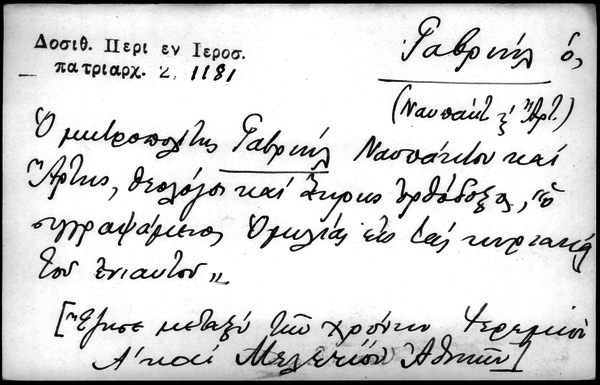 Δοσιθ. Περι εν Ιεροσ.
πατριαρχ. 2, 1181
Γαβριήλ ὁ,
(Ναυπάκτ κ Ἄρτ.)
Ὁ μητροπολίτης Γαβριήλ Ναυπάκτου καί
Ἄρτης, θεολόγος καί ἄκρως ὀρθόδοξος, "ὁ
συγγραψάμενος Ὁμιλίας εἰς τάς κυριακάς
τοῦ ἐνιαυτοῦ"
[Ἔζησε μεταξύ τῶν χρόνων Ἱερεμίου
Α' καί Μελετίου Ἀθηνῶν]